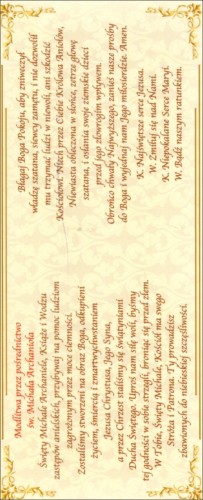 Modlitwa przez pośrednictwo
św. Michała Archanioła
Święty Michale Archaniele, Książę i Wodzu
zastępów anielskich, przybywaj na pomoc ludziom
zagrożonym przez moce ciemności.
Zostaliśmy stworzeni na obraz Boga, odkupieni
życiem, śmiercią i zmartwychwstaniem
Jezusa Chrystusa, Jego Syna,
a przez Chrzest staliśmy się świątyniami
Ducha Świętego. Uproś nam siłę woli, byśmy
tej godności w sobie strzegli, broniąc się przed złem.
W Tobie, Święty Michale, Kościół ma swego
Stróża i Patrona. Ty prowadzisz
zbawionych do niebieskiej szczęśliwości.
Błagaj Boga Pokoju, aby zniweczył
władzę szatana, siewcy zamętu, i nie dozwolił
mu trzymać ludzi w niewoli, ani szkodzić
Kościołowi. Niech przez Ciebie Królowa Aniołów,
Niewiasta obleczona w słońce, zetrze głowę
szatana, i osłania swoje ziemskie dzieci
przed jego zbrodniczym wpływem.
Obrońco chwały Najwyższego, zanieś nasze prośby
do Boga i wyjednaj nam Jego miłosierdzie. Amen.
K. Najświętsze serce Jezusa.
W. Zmiłuj się nad Nami.
K. Niepokalane Serce Maryi.
W. Bądź naszym ratunkiem.